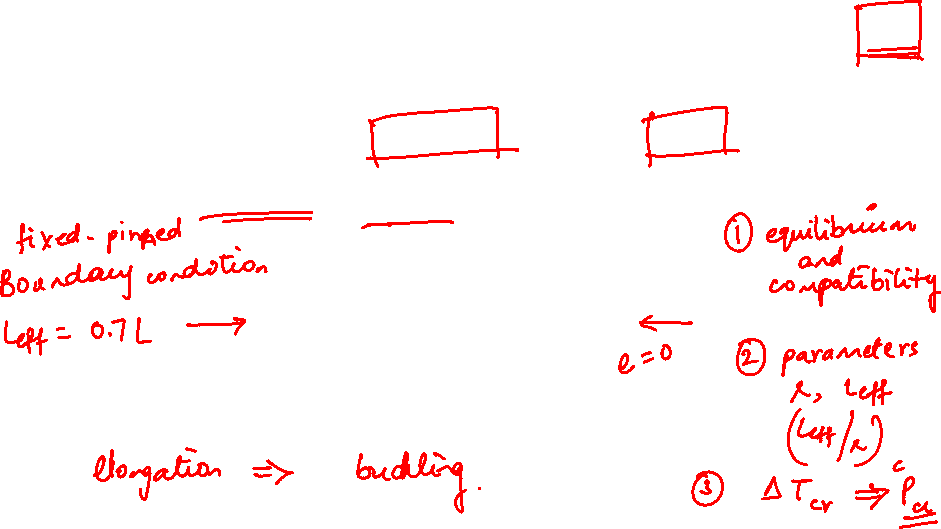 fixed-pinned
Boundary condition
Leff = 0.7L →
Elongation ⇒ buckling.
← 
e = 0
① equilibrium
and
compatibility
② parameters
r, Leff
(Leff/r)
③ ΔTcr ⇒ Pcr